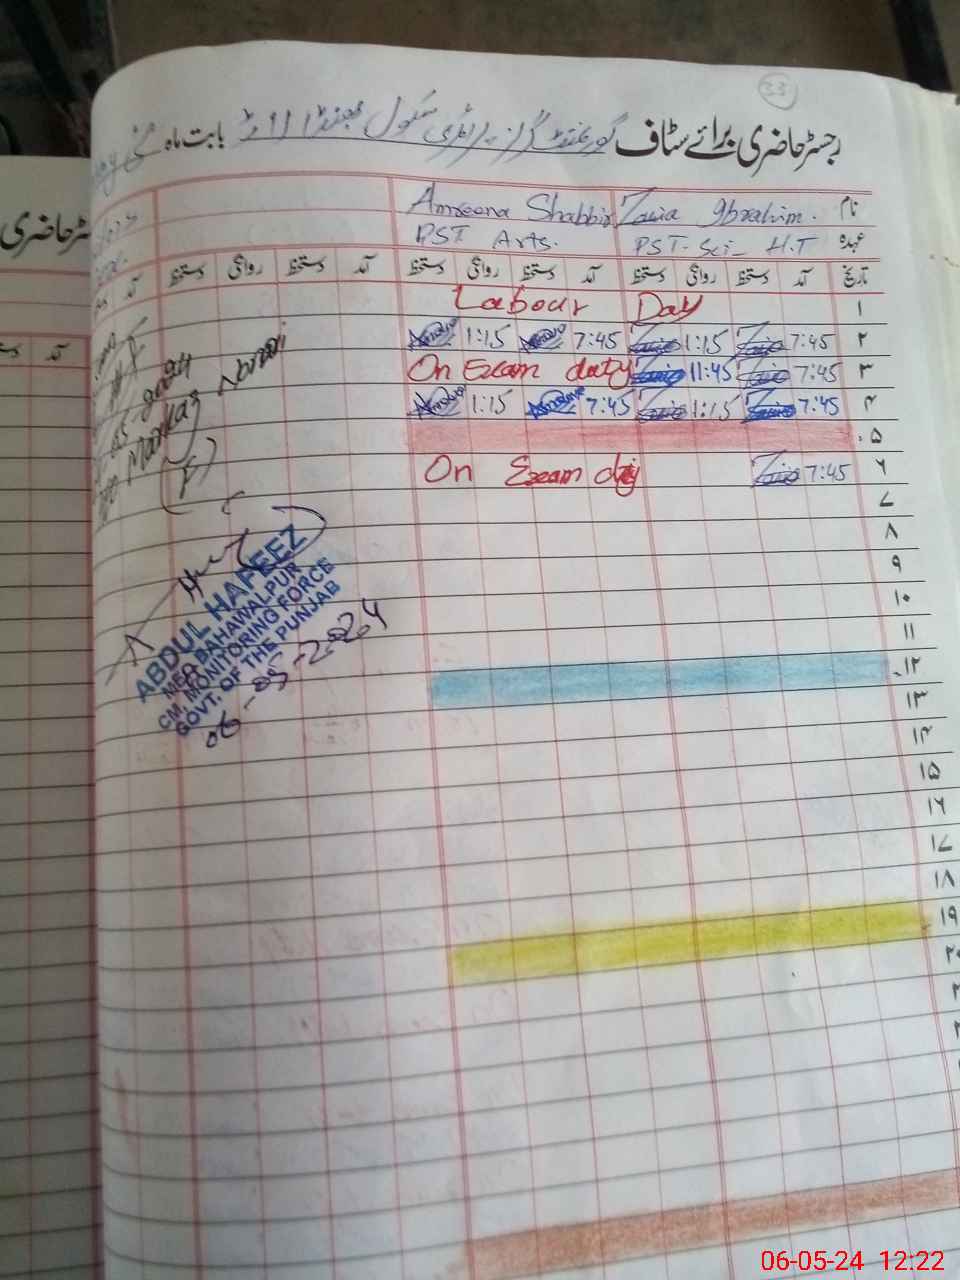 33
رجسٹر حاضری برائے سٹاف گورنمنٹ گرلز پرائمری سکول جھنڈا بابت ماہ مئی
نام Zauia Ibrahim. Amreena Shabbir
عہدہ PST-Sci- H.T PST Arts.
تاریخ آمد دستخط روانگی دستخط آمد دستخط روانگی دستخط آمد دستخط روانگی دستخط آمد
۱ Labour Day
۲ 7:45 1:15 7:45 1:15
۳ 7:45 11:45 On Exam duty
۴ 7:45 1:15 7:45 1:15
۵
۶ 7:45 On Exam duty
۷
۸
۹
۱۰
۱۱
۱۲
۱۳
۱۴
۱۵
۱۶
۱۷
۱۸
۱۹
۲۰
Markaz
ABDUL HAFEEZ
MEA BAHAWALPUR
CM, MONITORING FORCE
GOVT. OF THE PUNJAB
06-05-2024
رجسٹر حاضری
آمد
06-05-24 12:22